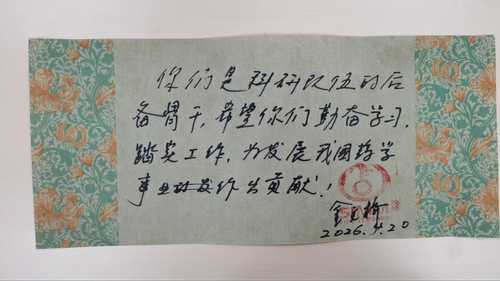 你们是科研队伍的后
备骨干,希望你们勤奋学习,
踏实工作,为发展我国药学
事业作出贡献!
金
2026.4.20